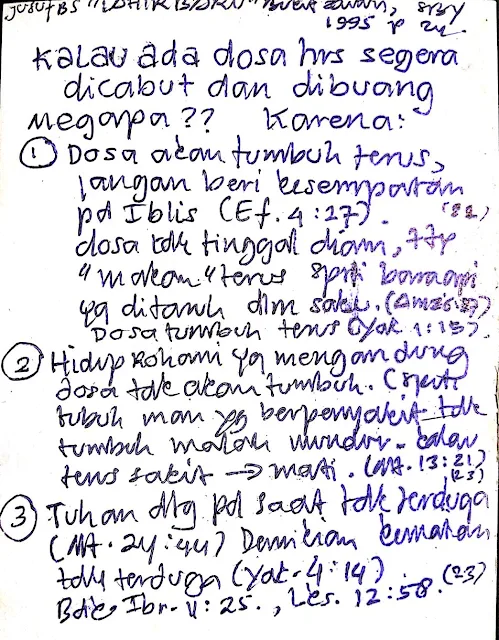 Jusuf BS "LAHIR BARU" Buku zaitun, SRBY
1995 p 24.
Kalau ada dosa hrs segera
dicabut dan dibuang
Megarpa?? Karena:
① Dosa akan tumbuh terus,
jangan beri kesempatan
pd Iblis (Ef. 4:27).
dosa tdk tinggal diam, ttp
"makan" terus sprti bara api
yg ditaruh dlm saku.
Dosa tumbuh terus (Yak 1:15).
② Hidup Rohani yg mengandung
dosa tdk akan tumbuh. (Sprti
tubuh man yg berpenyakit tdk
tumbuh malah mundur. kalau
terus sakit → mati. (Mt. 13:21)
(23)
③ Tuhan dtg pd saat tdk terduga
(Mt. 24:44) Demikian kematian
tdk terduga (Yak. 4:14)
(23)
Ibr. 4:25., Les. 12:58.